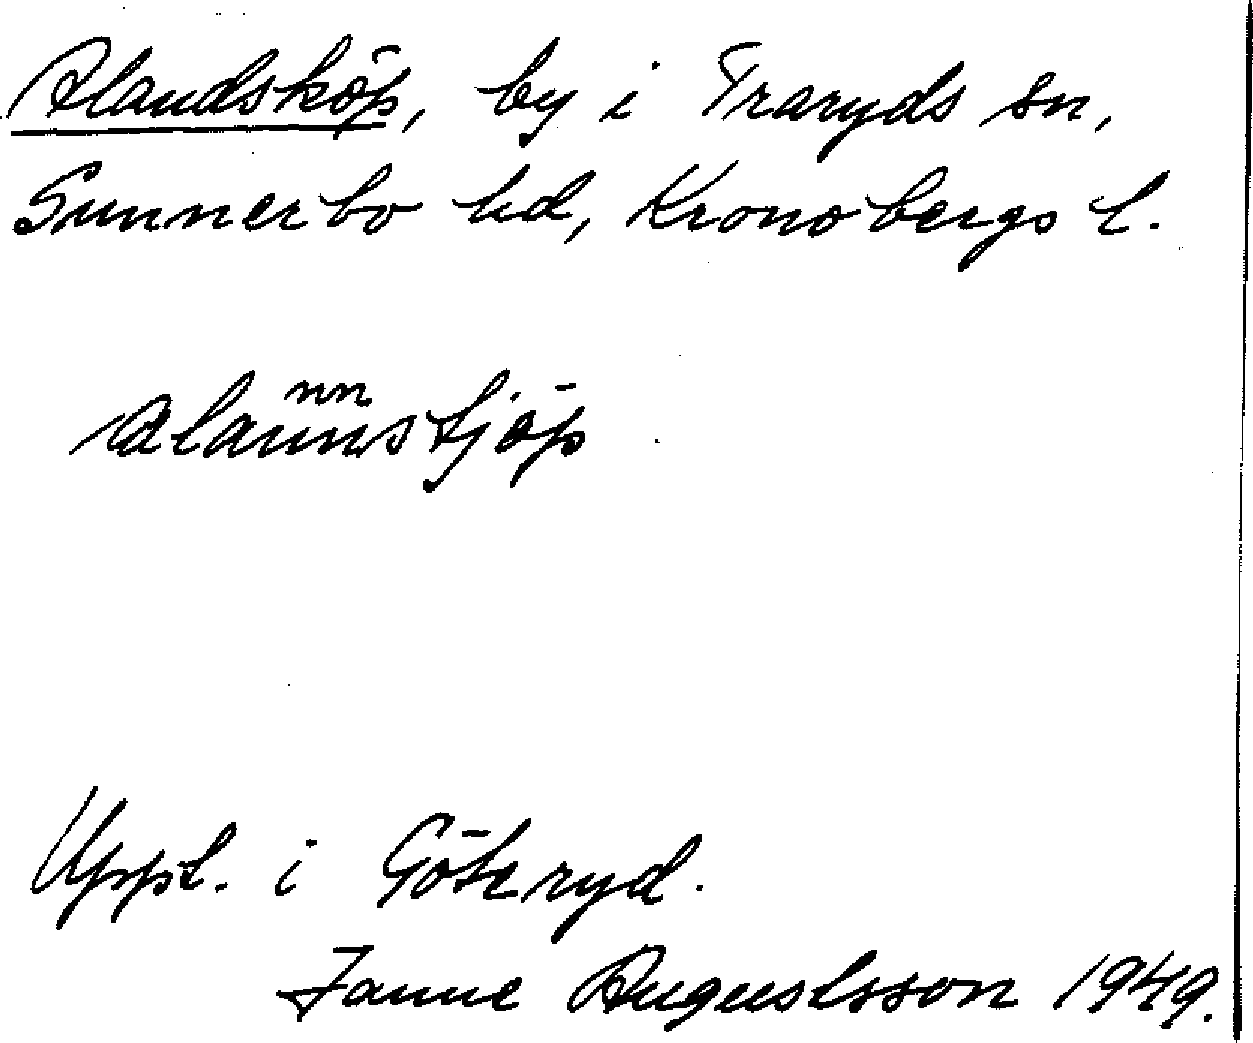 Alandsköp, by i Traryds sn,
Sunnerbo hd, Kronobergs l.
nn
alannstjöp
Uppt. i Göteryd.
Janne Augustsson 1949.